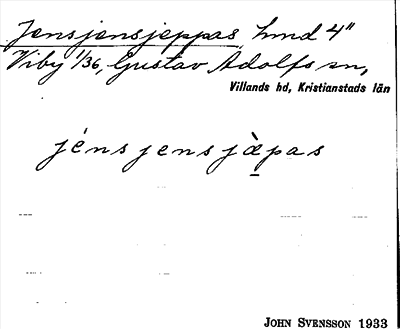 Jensjensjeppas, hmd 4"
Viby 1/36, Gustav Adolfs sn,
Villands hd, Kristianstads län
jénsjensjàpas
JOHN SVENSSON 1933